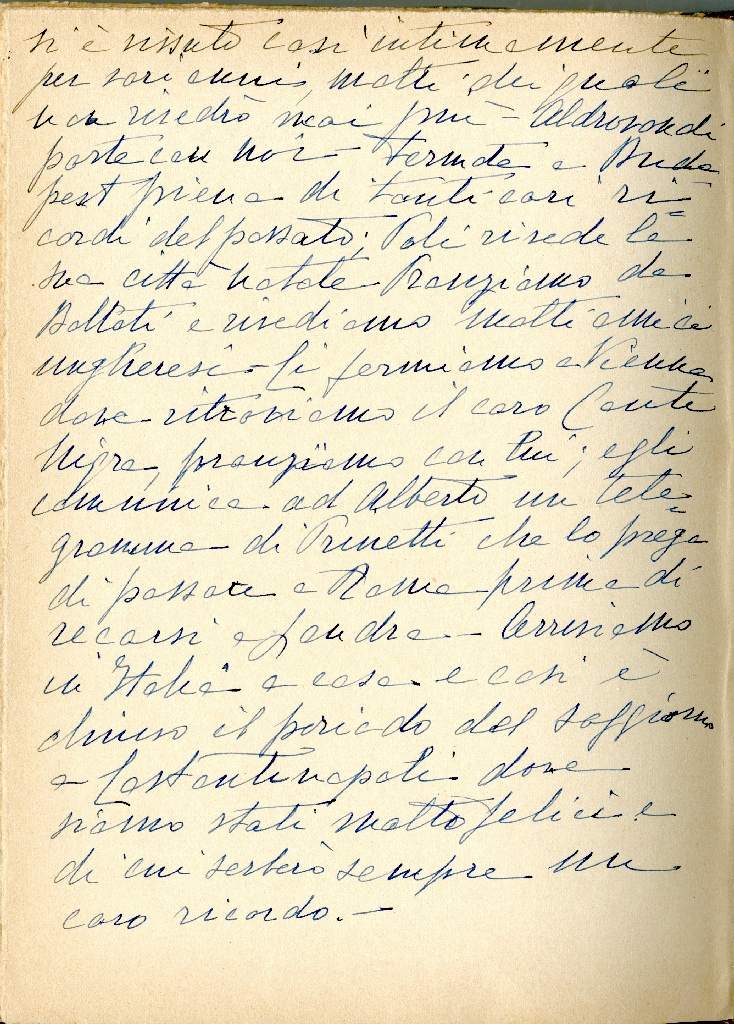 si è vissuto così intimamente
per vari anni, molti dei quali
non rivedrò mai più - Aldrovandi
parte con noi - Fermata a Buda
pest piena di tanti cari ri=
cordi del passato; rivede la
sua città natale Pranziamo da
e rivediamo molti amici
ungheresi - Ci fermiamo a Vienna
dove ritroviamo il caro Conte
Nigra, pranziamo con lui; egli
comunica ad Alberto un tele=
gramma di Prinetti che lo prega
di passare a Roma prima di
recarsi a Londra - Arriviamo
in Italia a casa e così è
chiuso il periodo del soggiorno
a Costantinopoli dove
siamo stati molto felici e
di cui serberò sempre un
caro ricordo. -